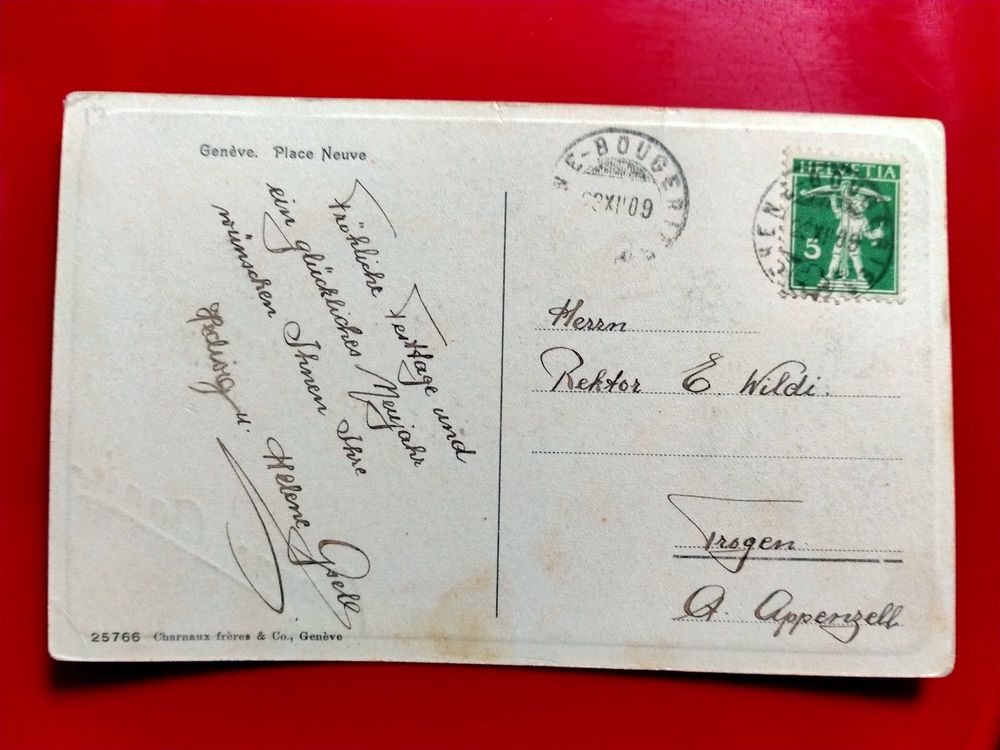 Genève. Place Neuve
Fröhliche Festtage und
ein glückliches Neujahr
wünschen Ihnen Ihre
Hedwig u. Helene Gsell
25766 Charnaux frères & Co., Genève
XII 09
HELVETIA
5
Herrn
Rektor E. Wildi.
Trogen
Ct. Appenzell